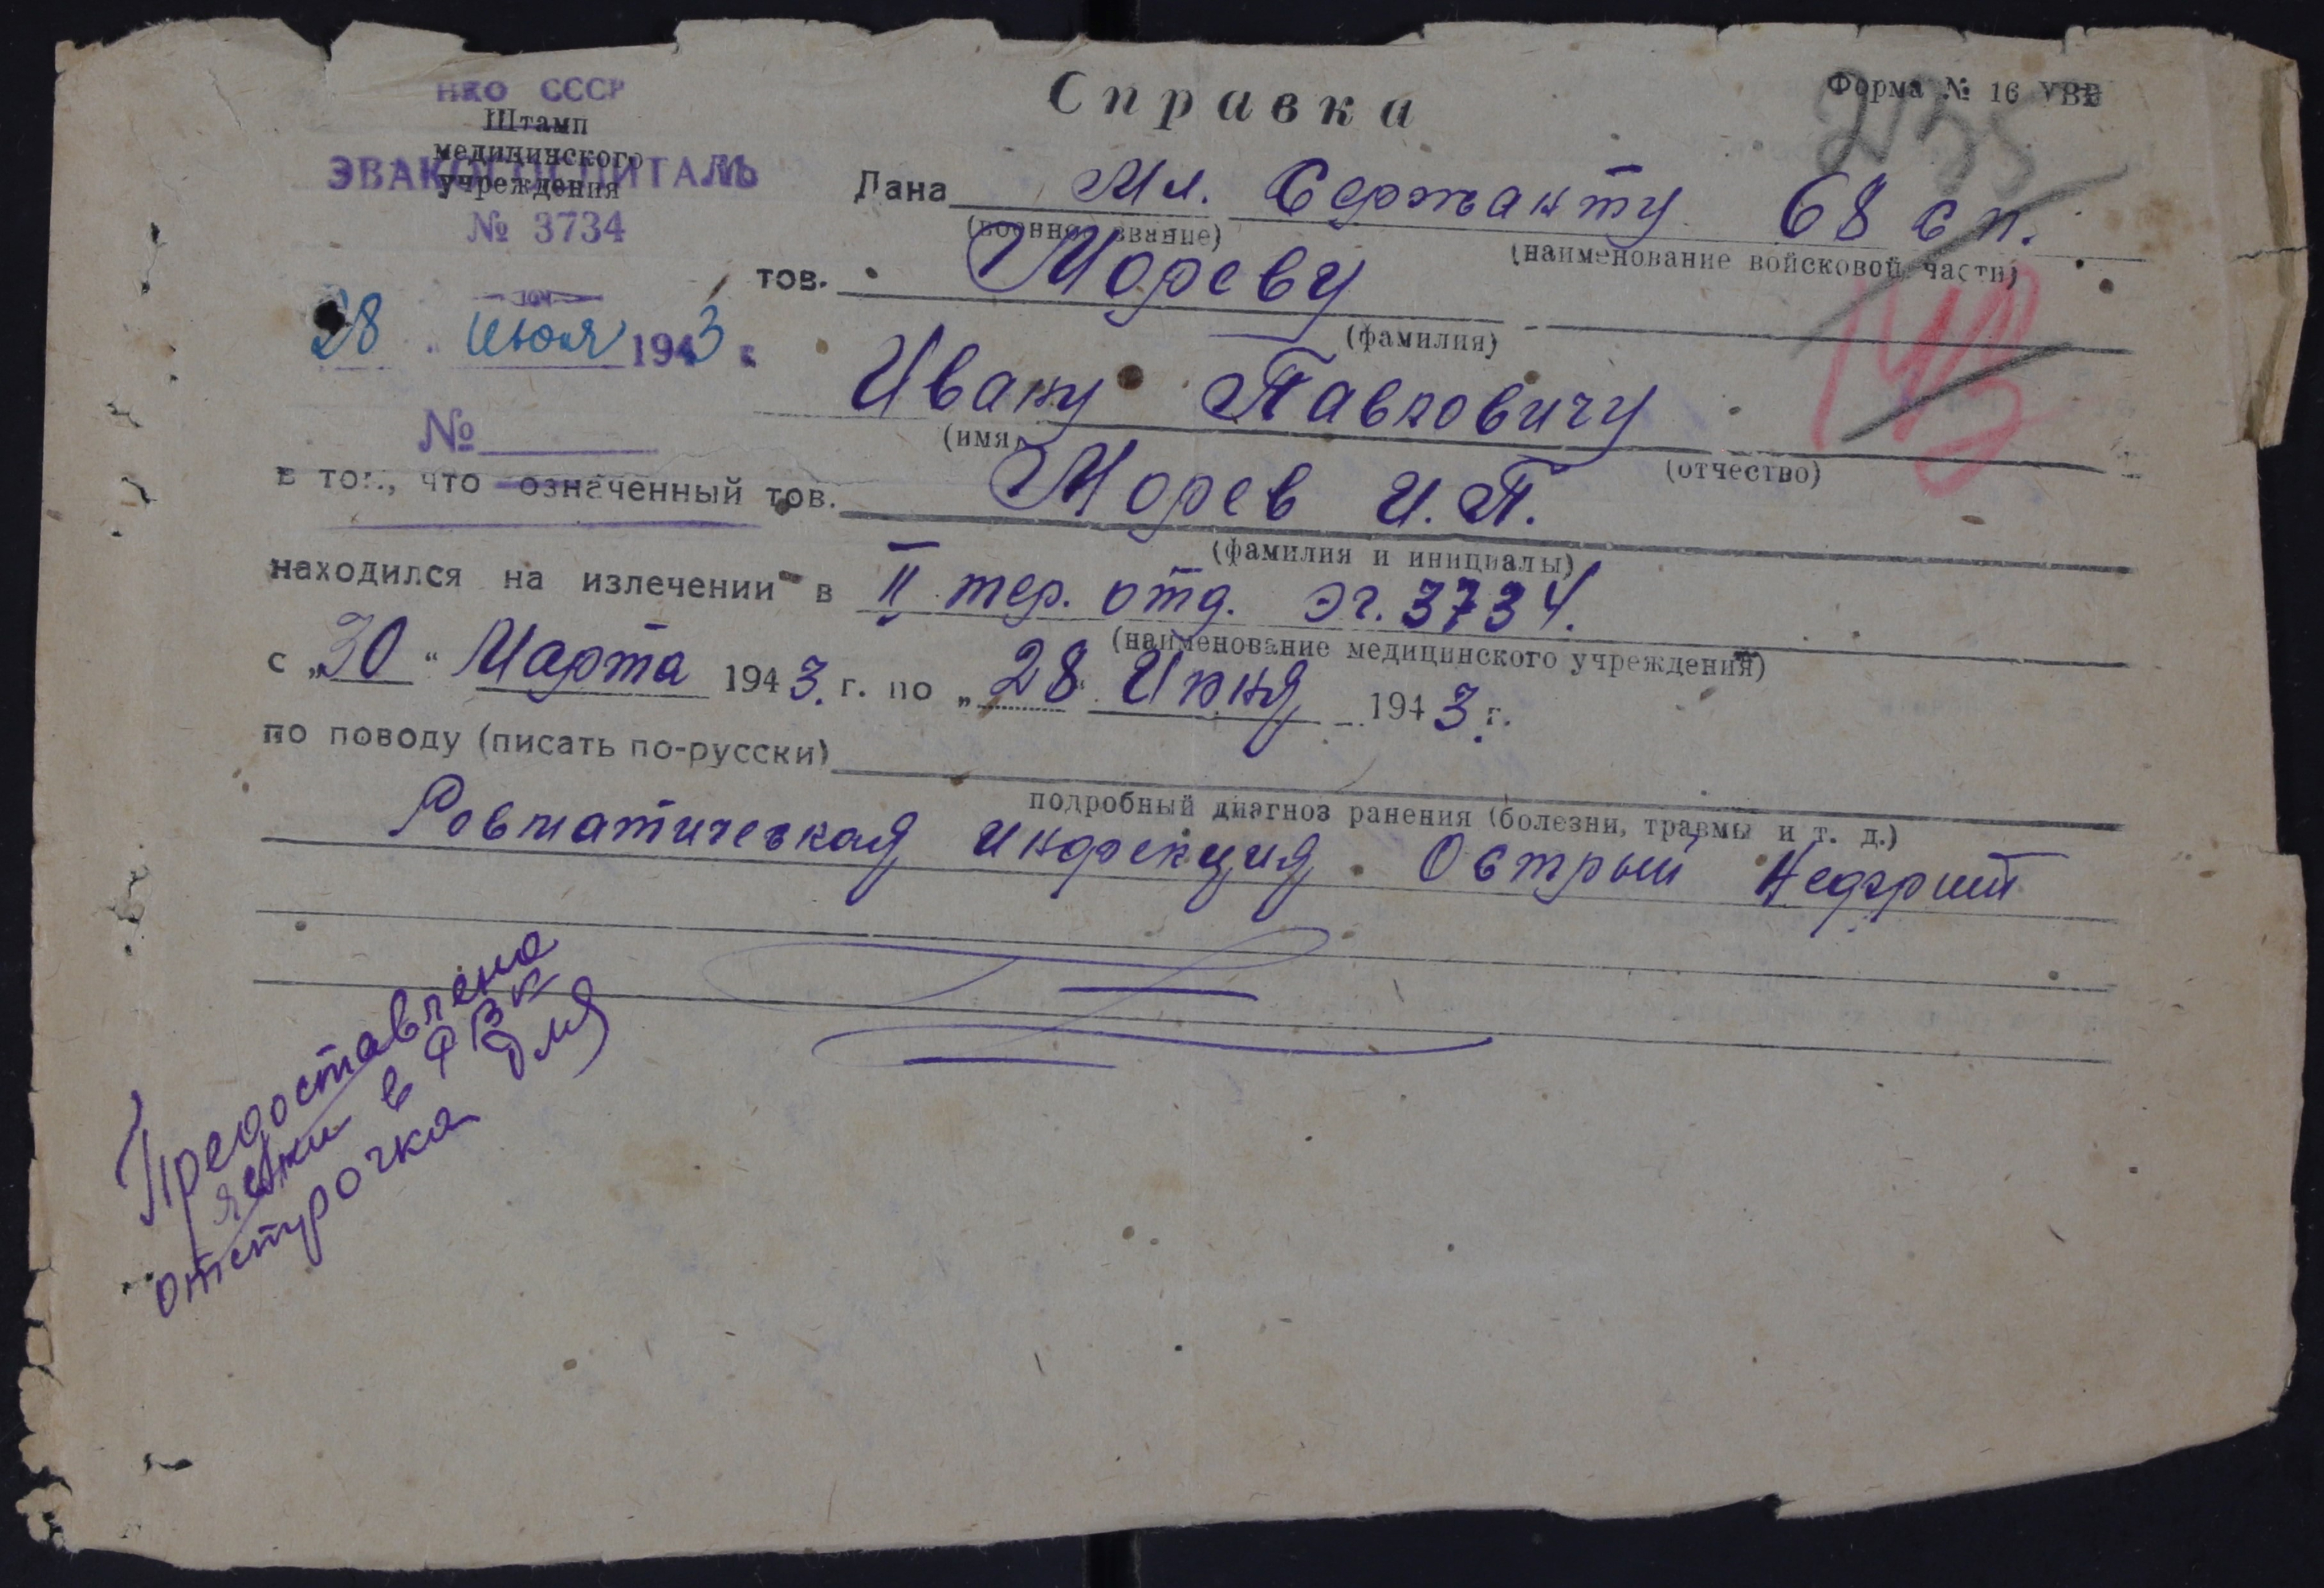 НКО СССР
Штамп
медицинского
учреждения
ЭВАКОГОСПИТАЛЬ
№ 3734
28 июня 1943 г.
№
Справка
Форма № 16
Дана Мл. Сержанту 68 сп.
(военное звание) (наименование войсковой части)
тов. Мореву
(фамилия)
Ивану Павловичу
(имя) (отчество)
в том, что означенный тов. Морев И.П.
(фамилия и инициалы)
находился на излечении в II тер. отд. эг. 3734.
(наименование медицинского учреждения)
с „30“ Марта 1943. г. по „28“ Июня 1943 г.
по поводу (писать по-русски)
подробный диагноз ранения (болезни, травмы и т. д.)
Ревматическая инфекция. Острый Нефрит
Предоставлена
в РВК
для
отстрочка